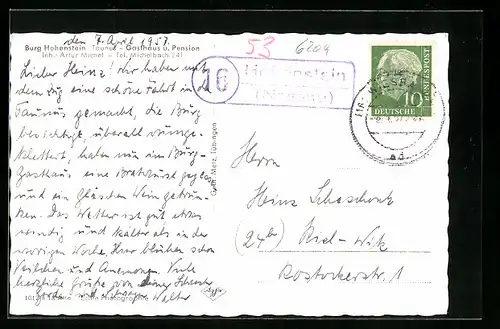 den 7. April 1957.
Burg Hohenstein Taunus - Gasthaus u. Pension
Inh. Artur Mamel - Tel. Michelbach 241
Lieber Heinz! Wir haben mit
dem Zug eine schöne Fahrt in den
Taunus gemacht, die Burg
besichtigt, überall rumge-
klettert, haben nun im Burg-
gasthaus eine Bratwurst gegessen
und ein Gläschen Wein getrun-
ken. Das Wetter ist gut etwas
windig und kälter als in der
vorigen Woche. Hier blühen schon
Veilchen und Anemonen. Viele
herzliche Grüße von deiner Schwester
Gerda und Schwager Walter
Gebr. Metz, Tübingen
53
6209
16
Hohenstein
DEUTSCHE
BUNDESPOST
10
Herrn
Heinz
(24b) Kiel-Wik
Rostockerstr. 1